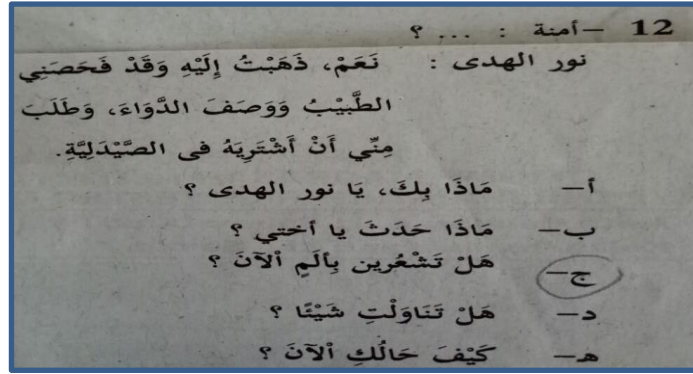 12 – أمنة : ... ؟
نور الهدى : نَعَمْ، ذَهَبْتُ إِلَيْهِ وَقَدْ فَحَصَنِي
الطَّبِيْبُ وَوَصَفَ الدَّوَاءَ، وَطَلَبَ
مِنِّي أَنْ أَشْتَرِيَهُ فى الصَّيْدَلِيَّةِ.
أ– مَاذَا بِكَ، يَا نور الهدى ؟
ب– مَاذَا حَدَثَ يا أختي ؟
ج– هَلْ تَشْعُرِين بِأَلَمٍ اْلآنَ ؟
د– هَلْ تَنَاوَلْتِ شَيْئًا ؟
هـ– كَيْفَ حَالُكِ اْلآنَ ؟